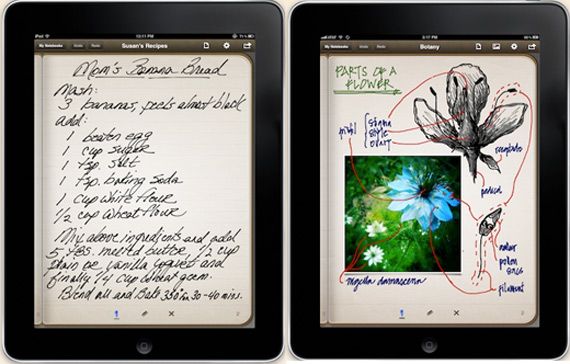 12:11 PM
My Notebooks Undo Redo Susan's Recipes
Mom's Banana Bread
Mash:
3 bananas, peels almost black
add:
1 beaten egg
1 cup sugar
1 tsp. salt
1 tsp. baking soda
1 cup white flour
1/2 cup wheat flour
Mix above ingredients and add
5 tbs. melted butter, 1/2 cup
plain or vanilla yogurt and
finally 1/4 cup wheat germ.
Blend all and Bake 350 for 30-40 mins.
3:17 PM
My Notebooks Undo Redo Botany
PARTS OF A
FLOWER
pistil
stigma
style
ovary
receptacle
pedicel
anther
pollen
sacs
filament
nigella damascena